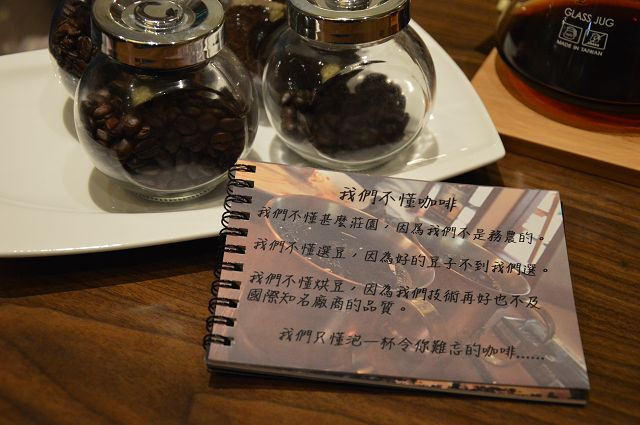 GLASS JUG
MADE IN TAIWAN
我們不懂咖啡
我們不懂甚麼莊園，因為我們不是務農的。
我們不懂選豆，因為好的豆子不到我們選。
我們不懂烘豆，因為我們技術再好也不及
國際知名廠商的品質。
我們只懂泡一杯令你難忘的咖啡......